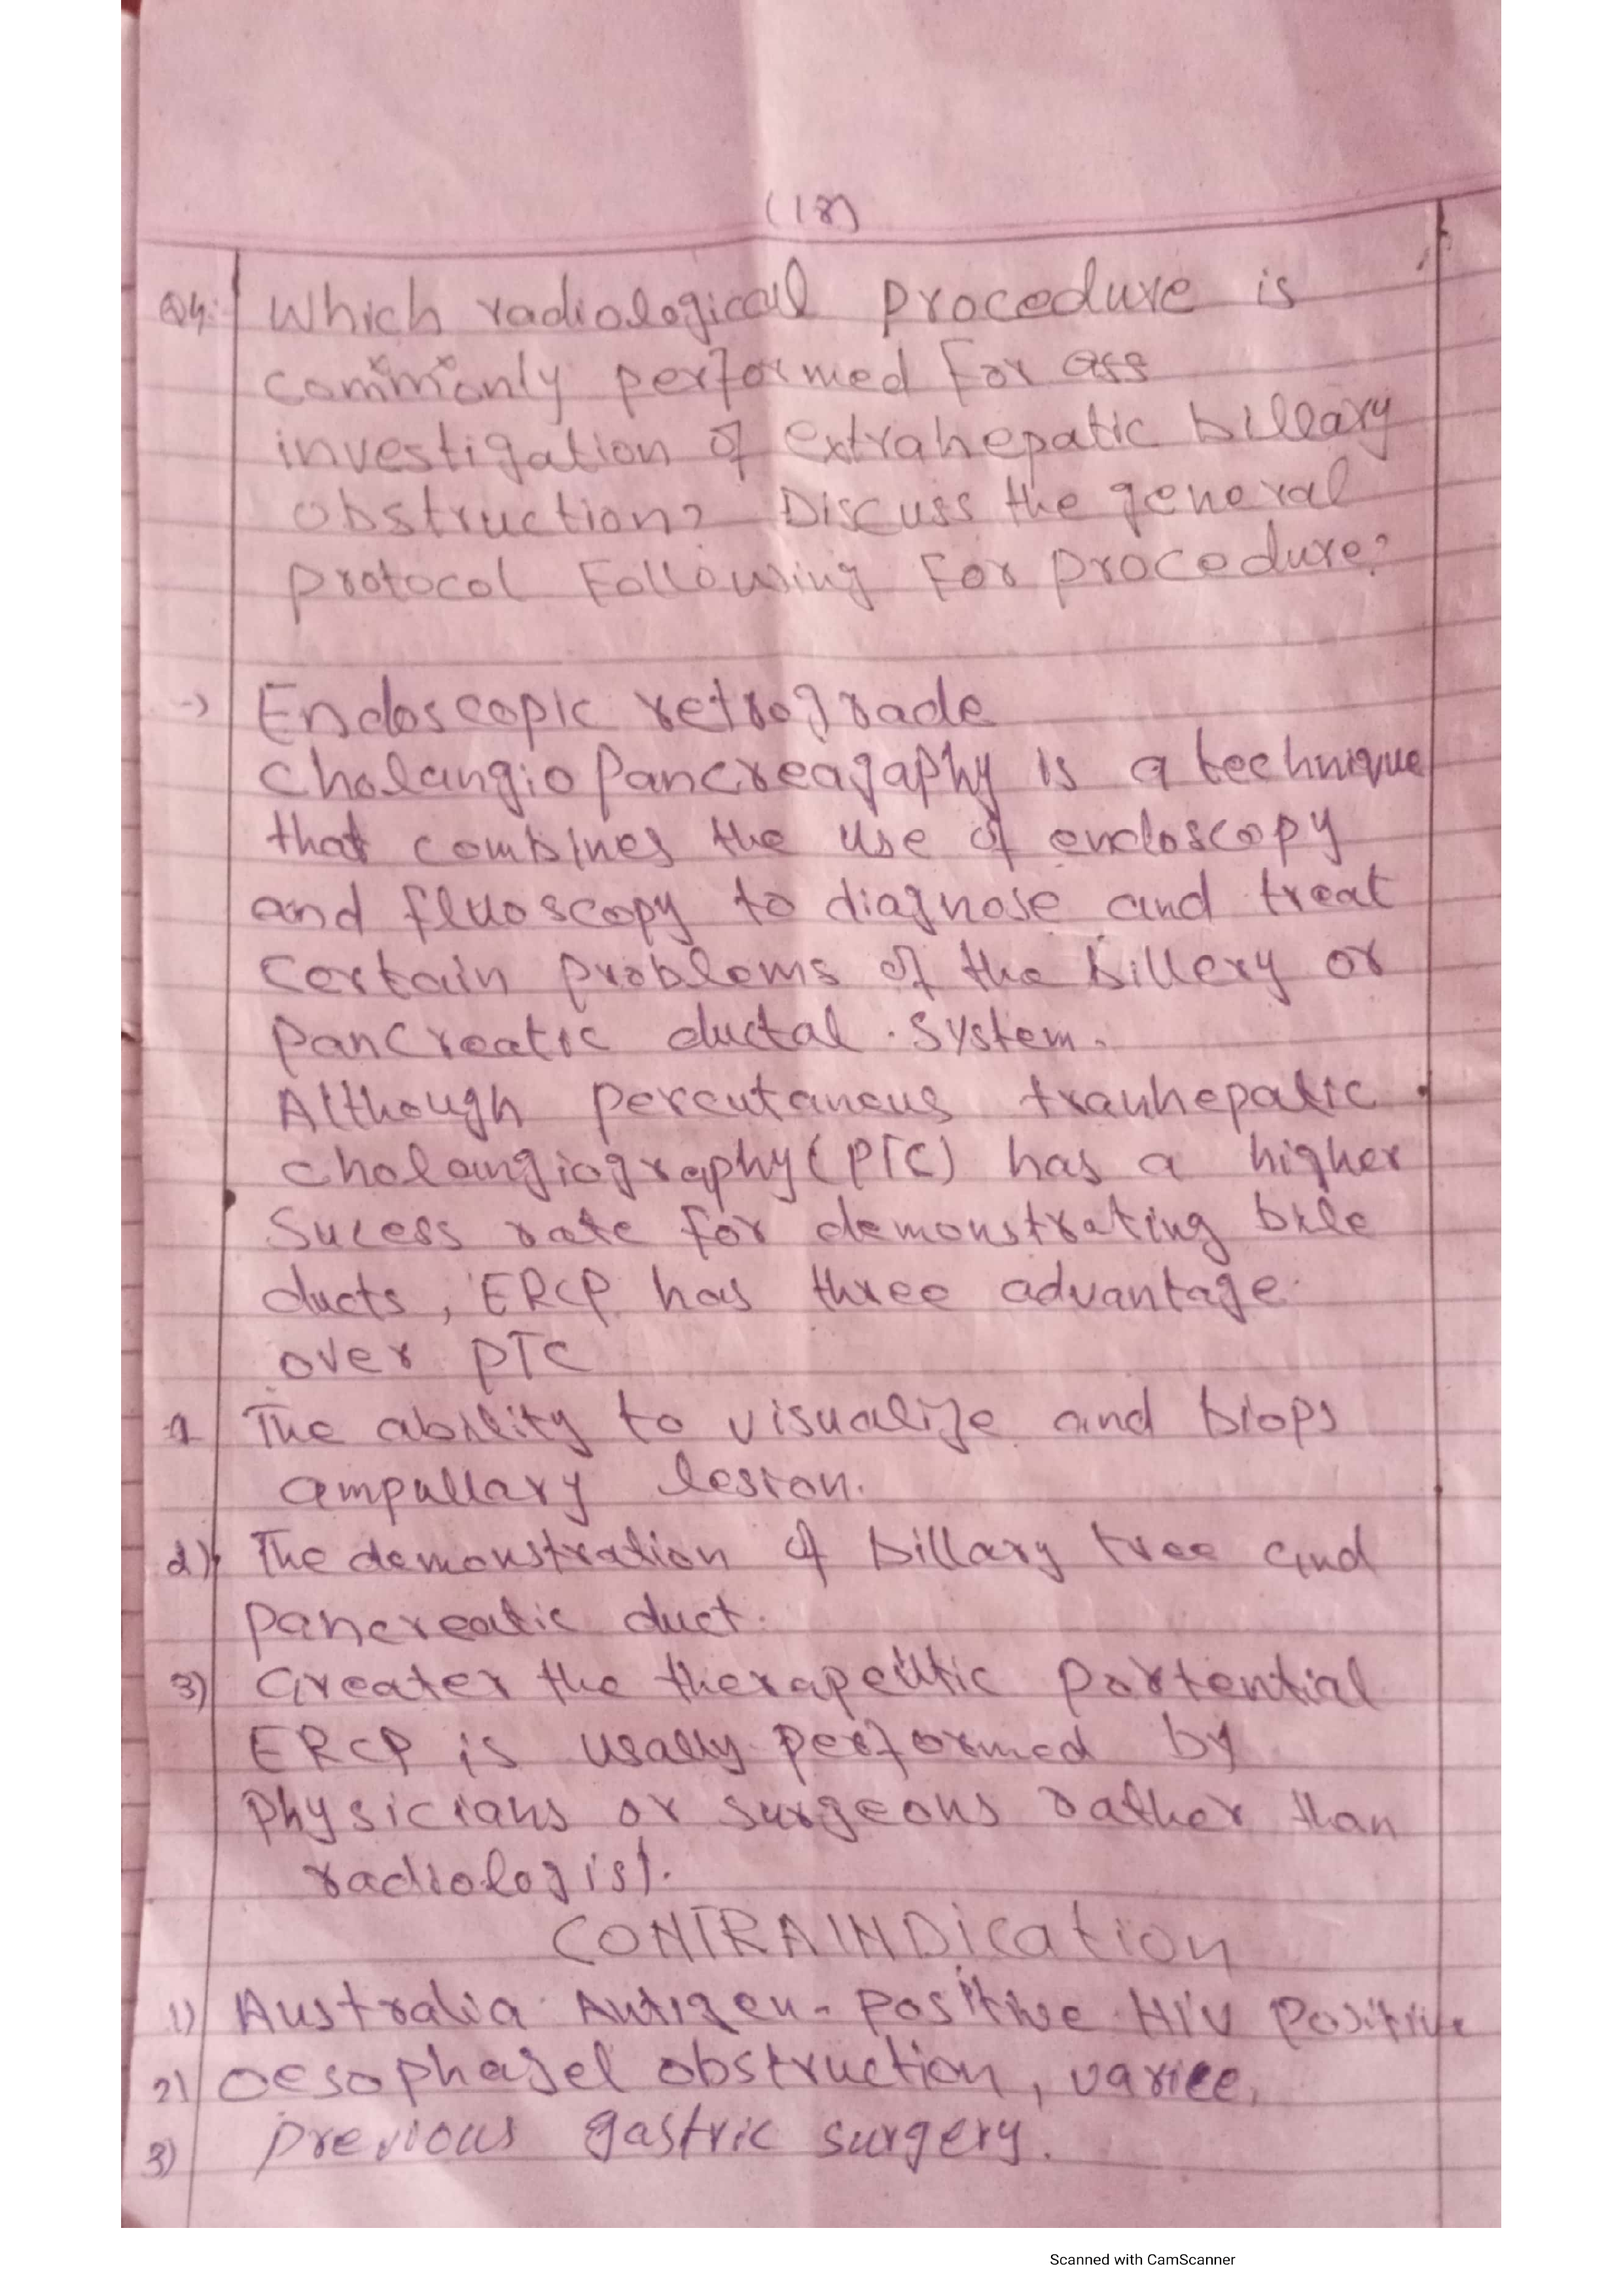 (18)
Q4: Which radiological procedure is
commonly performed for ass
investigation of extrahepatic billeary
obstruction? Discuss the general
protocol Following For procedure?
-) Endoscopic retrograde
cholangiopancreagaphy is a technique
that combines the use of endoscopy
and fluoscopy to diagnose and treat
certain problems of the billery or
pancreatic ductal system.
Although percutaneus tranhepatic
cholangiography (PTC) has a higher
Sucess rate for demonstrating bile
ducts, ERCP has three advantage
over PTC
1 The ability to visualize and biops
ampullary lesion.
2) The demonstration of billary tree and
pancreatic duct.
3) Greater the therapeutic portential
ERCP is usally performed by
physicians or surgeons rather than
radiologist.
CONTRAINDication
1) Australia Antigen-positive HIV positive
2) oesophagel obstruction, varice,
3) previous gastric surgery.
Scanned with CamScanner